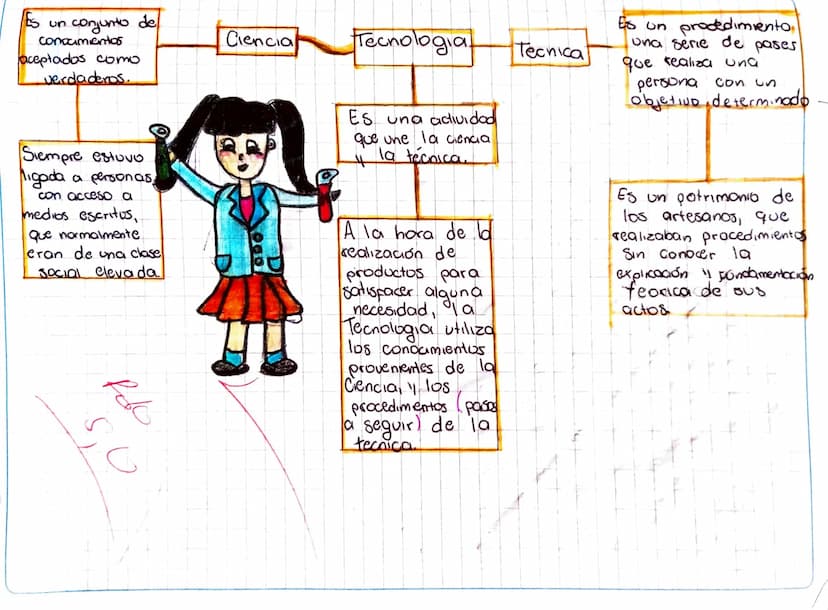 Es un conjunto de
conocimientos
aceptados como
verdaderos.
Ciencia
Tecnología
Tecnica
Es un procedimiento,
una serie de pases
que realiza una
persona con un
objetivo determinado
Siempre estuvo
ligada a personas
con acceso a
medios escritos,
que normalmente
eran de una clase
social elevada
Es una actividad
que une la ciencia
y la técnica.
A la hora de la
realización de
productos para
satisfacer alguna
necesidad, la
Tecnología utiliza
los conocimientos
provenientes de la
Ciencia, y los
procedimentos (pasos
a seguir) de la
tecnica.
Es un patrimonio de
los artesanos, que
realizaban procedimientos
sin conocer la
explicación y fundamentación
teorica de sus
actos